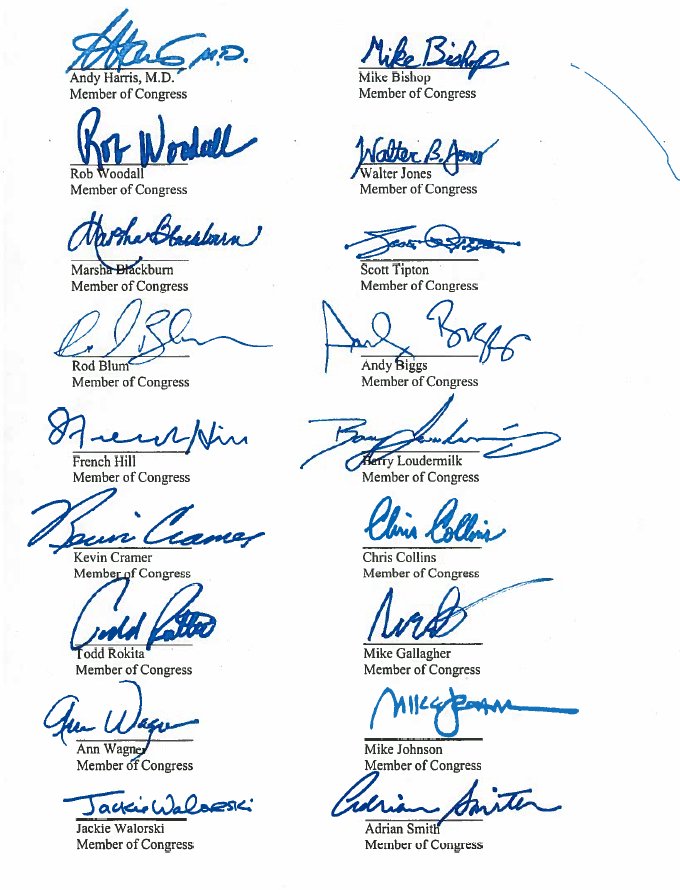 Andy Harris, M.D.
Member of Congress
Mike Bishop
Mike Bishop
Member of Congress
Rob Woodall
Rob Woodall
Member of Congress
Walter B. Jones
Walter Jones
Member of Congress
Marsha Blackburn
Marsha Blackburn
Member of Congress
Scott Tipton
Member of Congress
Rod Blum
Member of Congress
Andy Biggs
Andy Biggs
Member of Congress
French Hill
French Hill
Member of Congress
Barry Loudermilk
Member of Congress
Kevin Cramer
Kevin Cramer
Member of Congress
Chris Collins
Chris Collins
Member of Congress
Todd Rokita
Member of Congress
Mike Gallagher
Member of Congress
Ann Wagner
Ann Wagner
Member of Congress
Mike Johnson
Member of Congress
Jackie Walorski
Jackie Walorski
Member of Congress
Adrian Smith
Adrian Smith
Member of Congress